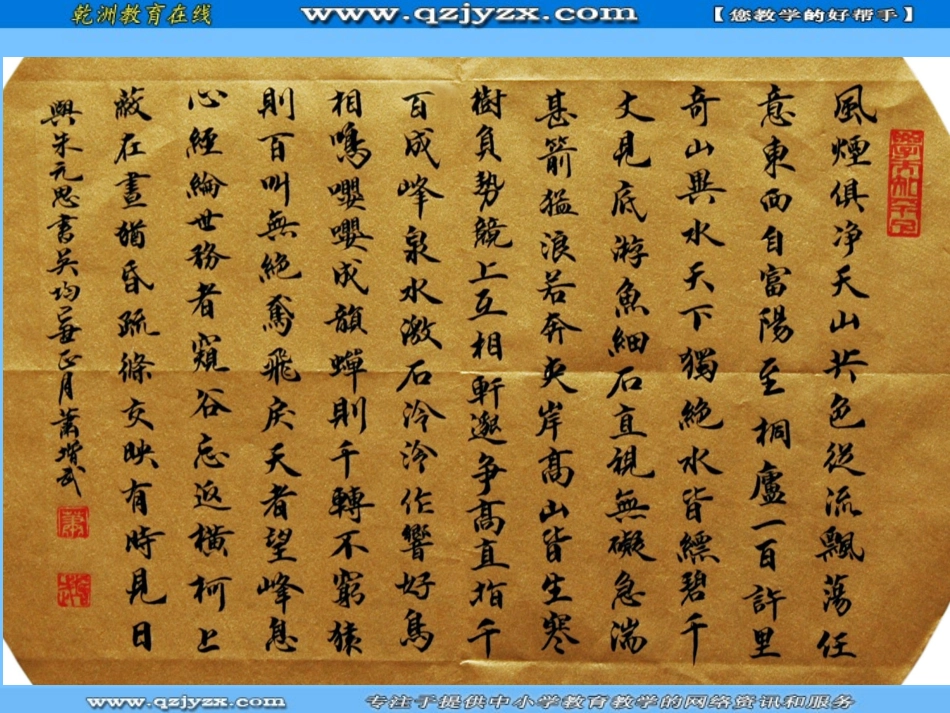 乾洲教育在线 www.qzjyzx.com 【您教学的好帮手】
風煙俱净天山共色從流飄蕩任
意東西自富陽至桐廬一百許里
奇山異水天下獨絶水皆縹碧千
丈見底游魚細石直視無礙急湍
甚箭猛浪若奔夹岸高山皆生寒
樹負勢競上互相軒邈争高直指千
百成峰泉水激石泠泠作響好鳥
相鳴嚶嚶成韻蟬則千轉不窮猿
則百叫無絶鳶飛戾天者望峰息
心經綸世務者窺谷忘返橫柯上
蔽在晝猶昏疏條交映有時見日
與朱元思書吴均 正月蕭
www.qzjyzx.com 专注于提供中小学教育教学的网络资讯和服务